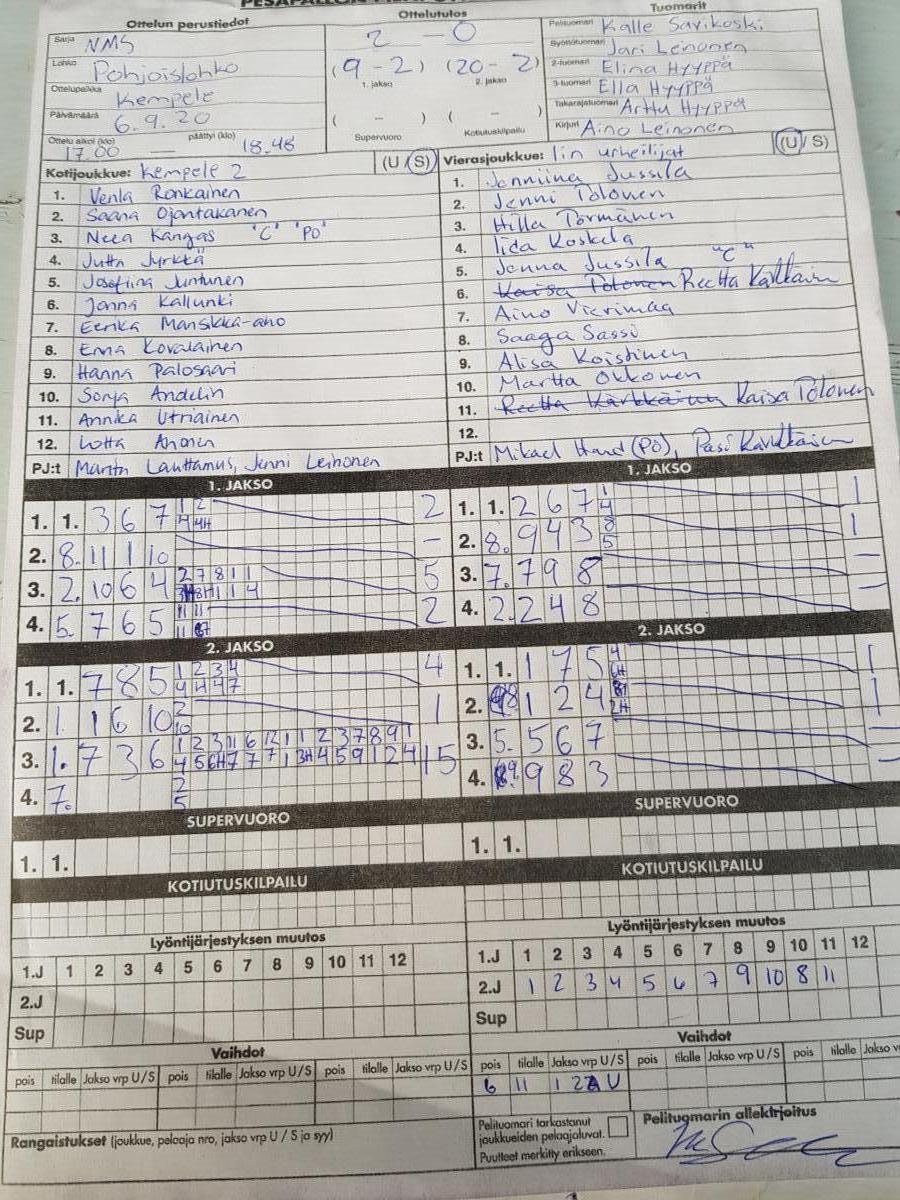 Ottelun perustiedot
Sarja NMS
Lohko Pohjoislohko
Ottelupaikka Kempele
Päivämäärä 6.9.20
Ottelu alkoi (klo) päättyi (klo)
17.00 — 18.48
Ottelutulos
2 - 0
(9 - 2) (20 - 2)
1. jakso 2. jakso
( - ) ( - )
Supervuoro Kotiutuskilpailu
Tuomarit
Pelituomari Kalle Savikoski
Syöttötuomari Jari Leinonen
2-tuomari Elina Hyyppä
3-tuomari Ella Hyyppä
Takarajatuomari Arttu Hyyppä
Kirjuri Aino Leinonen
Kotijoukkue: Kempele 2 (U / S)
1. Venla Ronkainen
2. Saana Ojantakanen
3. Neea Kangas 'C' 'PO'
4. Jutta Jyrkkä
5. Josefiina Juntunen
6. Janna Kallunki
7. Eerika Mansikka-aho
8. Enna Kovalainen
9. Hanna Palosaari
10. Sonja Andelin
11. Annika Utriainen
12. Lotta Ahonen
PJ:t Martti Lauttamus, Jenni Leinonen
Vierasjoukkue: Iin urheilijat (U / S)
1. Jenniina Jussila
2. Jenni Tolonen
3. Hilla Törmänen
4. Iida Koskela
5. Jenna Jussila "C"
6. Kaisa Tolonen Reetta Kärkkäinen
7. Aino Vierimaa
8. Saaga Sassi
9. Alisa Koistinen
10. Martta Okkonen
11. Reetta Kärkkäinen Kaisa Tolonen
12.
PJ:t Mikael (PO), Pasi Karkkainen
1. JAKSO
1. 1. 3 6 7 1 2 2
4 4H
2. 8. 11 1 10 -
3. 2. 10 6 4 2 7 8 1 1 5
3H 8H 1 1 4
4. 5. 7 6 5 11 11 2
2. JAKSO
1. 1. 7 8 5 1 2 3 4 4
4 4 4 7
2. 1. 1 6 10 2 1
10
3. 1. 7 3 6 1 2 3 11 6 12 1 1 2 3 7 8 9 1 15
4 5 6H 7 7 7 1 3H 4 5 9 1 2 4
4. 7. 2
5
1. JAKSO
1. 1. 2 6 7 1 1
4
2. 8. 9 4 3 8 1
5
3. 7. 7 9 8 -
4. 2. 2 4 8 -
2. JAKSO
1. 1. 1 7 5 4 1
6H
2. 8 1 2 4 1
2H
3. 5. 5 6 7 -
4. 9. 9 8 3 -
SUPERVUORO
1. 1.
KOTIUTUSKILPAILU
SUPERVUORO
1. 1.
KOTIUTUSKILPAILU
Lyöntijärjestyksen muutos
1.J 1 2 3 4 5 6 7 8 9 10 11 12
2.J
Sup
Lyöntijärjestyksen muutos
1.J 1 2 3 4 5 6 7 8 9 10 11 12
2.J 1 2 3 4 5 6 7 9 10 8 11
Sup
Vaihdot
pois tilalle Jakso vrp U / S pois tilalle Jakso vrp U / S pois tilalle Jakso vrp U / S
Vaihdot
pois tilalle Jakso vrp U / S pois tilalle Jakso vrp U / S pois tilalle Jakso
6 11 1 2 U
Rangaistukset (joukkue, pelaaja nro, jakso vrp U / S ja syy)
Pelituomari tarkastanut
joukkueiden pelaajaluvat.
Puutteet merkitty erikseen.
Pelituomarin allekirjoitus